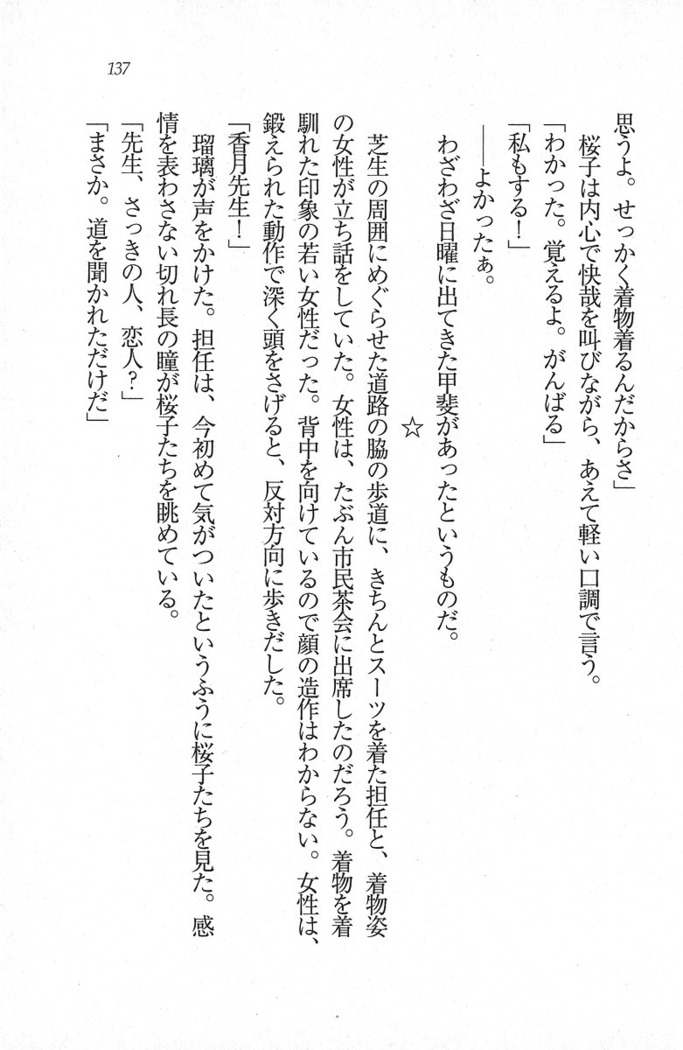 137
思うよ。せっかく着物着るんだからさ」
桜子は内心で快哉を叫びながら、あえて軽い口調で言う。
「わかった。覚えるよ。がんばる」
「私もする！」
――よかったぁ。
わざわざ日曜に出てきた甲斐があったというものだ。
☆
芝生の周囲にめぐらせた道路の脇の歩道に、きちんとスーツを着た担任と、着物姿
の女性が立ち話をしていた。女性は、たぶん市民茶会に出席したのだろう。着物を着
馴れた印象の若い女性だった。背中を向けているので顔の造作はわからない。女性は、
鍛えられた動作で深く頭をさげると、反対方向に歩きだした。
「香月先生！」
瑠璃が声をかけた。担任は、今初めて気がついたというふうに桜子たちを見た。感
情を表わさない切れ長の瞳が桜子たちを眺めている。
「先生、さっきの人、恋人？」
「まさか。道を聞かれただけだ」